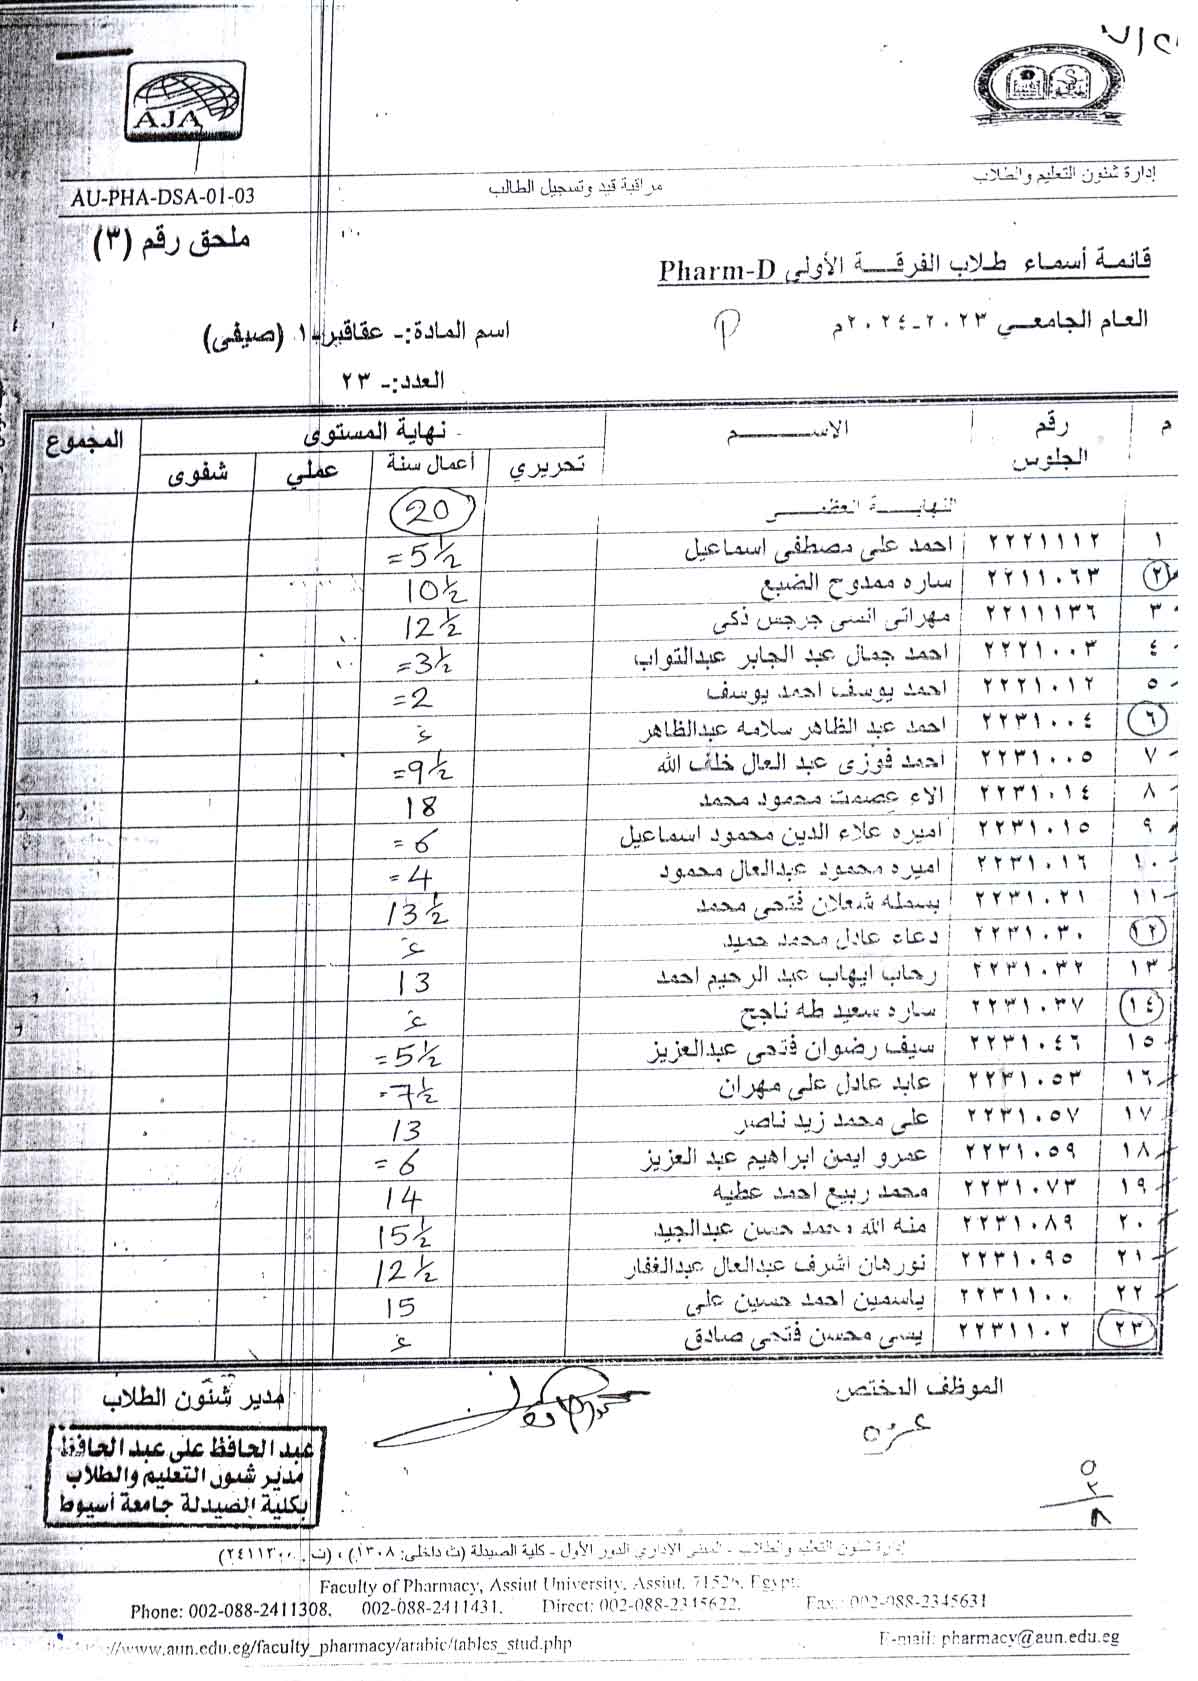 AJA
إدارة شئون التعليم والطلاب
مراقبة قيد وتسجيل الطالب
AU-PHA-DSA-01-03
ملحق رقم (٣)
قائمة أسماء طلاب الفرقة الأولى Pharm-D
العام الجامعي ٢٠٢٣-٢٠٢٤م
اسم المادة:- عقاقير-١ (صيفى)
العدد:- ٢٣
م رقم الجلوس الاســـم نهاية المستوى المجموع
تحريري أعمال سنة عملي شفوى
النهاية العظمى 20
١ ٢٢٢١١١٢ احمد على مصطفى اسماعيل 5½ =
٢ ٢٢١١٠٦٣ ساره ممدوح الضبع 10½
٣ ٢٢١١١٣٦ مهراتى انسى جرجس ذكى 12½
٤ ٢٢٢١٠٠٣ احمد جمال عبد الجابر عبدالتواب 3½ =
٥ ٢٢٢١٠١٢ احمد يوسف احمد يوسف 2 =
٦ ٢٢٣١٠٠٤ احمد عبد الظاهر سلامه عبدالظاهر غ
٧ ٢٢٣١٠٠٥ احمد فوزى عبد العال خلف الله 9½ =
٨ ٢٢٣١٠١٤ الاء عصمت محمود محمد 18
٩ ٢٢٣١٠١٥ اميره علاء الدين محمود اسماعيل 6 =
١٠ ٢٢٣١٠١٦ اميره محمود عبدالعال محمود 4 =
١١ ٢٢٣١٠٢١ بسمله شعلان فتحى محمد 13½
١٢ ٢٢٣١٠٣٠ دعاء عادل محمد حميد غ
١٣ ٢٢٣١٠٣٢ رحاب ايهاب عبد الرحيم احمد 13
١٤ ٢٢٣١٠٣٧ ساره سعيد طه ناجح غ
١٥ ٢٢٣١٠٤٦ سيف رضوان فتحى عبدالعزيز 5½ =
١٦ ٢٢٣١٠٥٣ عابد عادل على مهران 7½ =
١٧ ٢٢٣١٠٥٧ على محمد زيد ناصر 13
١٨ ٢٢٣١٠٥٩ عمرو ايمن ابراهيم عبد العزيز 6 =
١٩ ٢٢٣١٠٧٣ محمد ربيع احمد عطيه 14
٢٠ ٢٢٣١٠٨٩ منه الله محمد حسن عبدالجيد 15½
٢١ ٢٢٣١٠٩٥ نورهان اشرف عبدالعال عبدالغفار 12½
٢٢ ٢٢٣١١٠٠ ياسمين احمد حسين على 15
٢٣ ٢٢٣١١٠٢ يسى محسن فتحى صادق غ
الموظف المختص
مدير شئون الطلاب
عزه
عبد الحافظ على عبد الحافظ
مدير شئون التعليم والطلاب
بكلية الصيدلة جامعة أسيوط
إدارة شئون التعليم والطلاب - المبنى الاداري الدور الأول - كلية الصيدلة (ت داخلى: ١٣٠٨)، (ت: ٢٤١١٣٠٠)
Faculty of Pharmacy, Assiut University, Assiut, 71526, Egypt.
Phone: 002-088-2411308, 002-088-2411431, Direct: 002-088-2345622, Fax: 002-088-2345631
://www.aun.edu.eg/faculty_pharmacy/arabic/tables_stud.php E-mail: pharmacy@aun.edu.eg